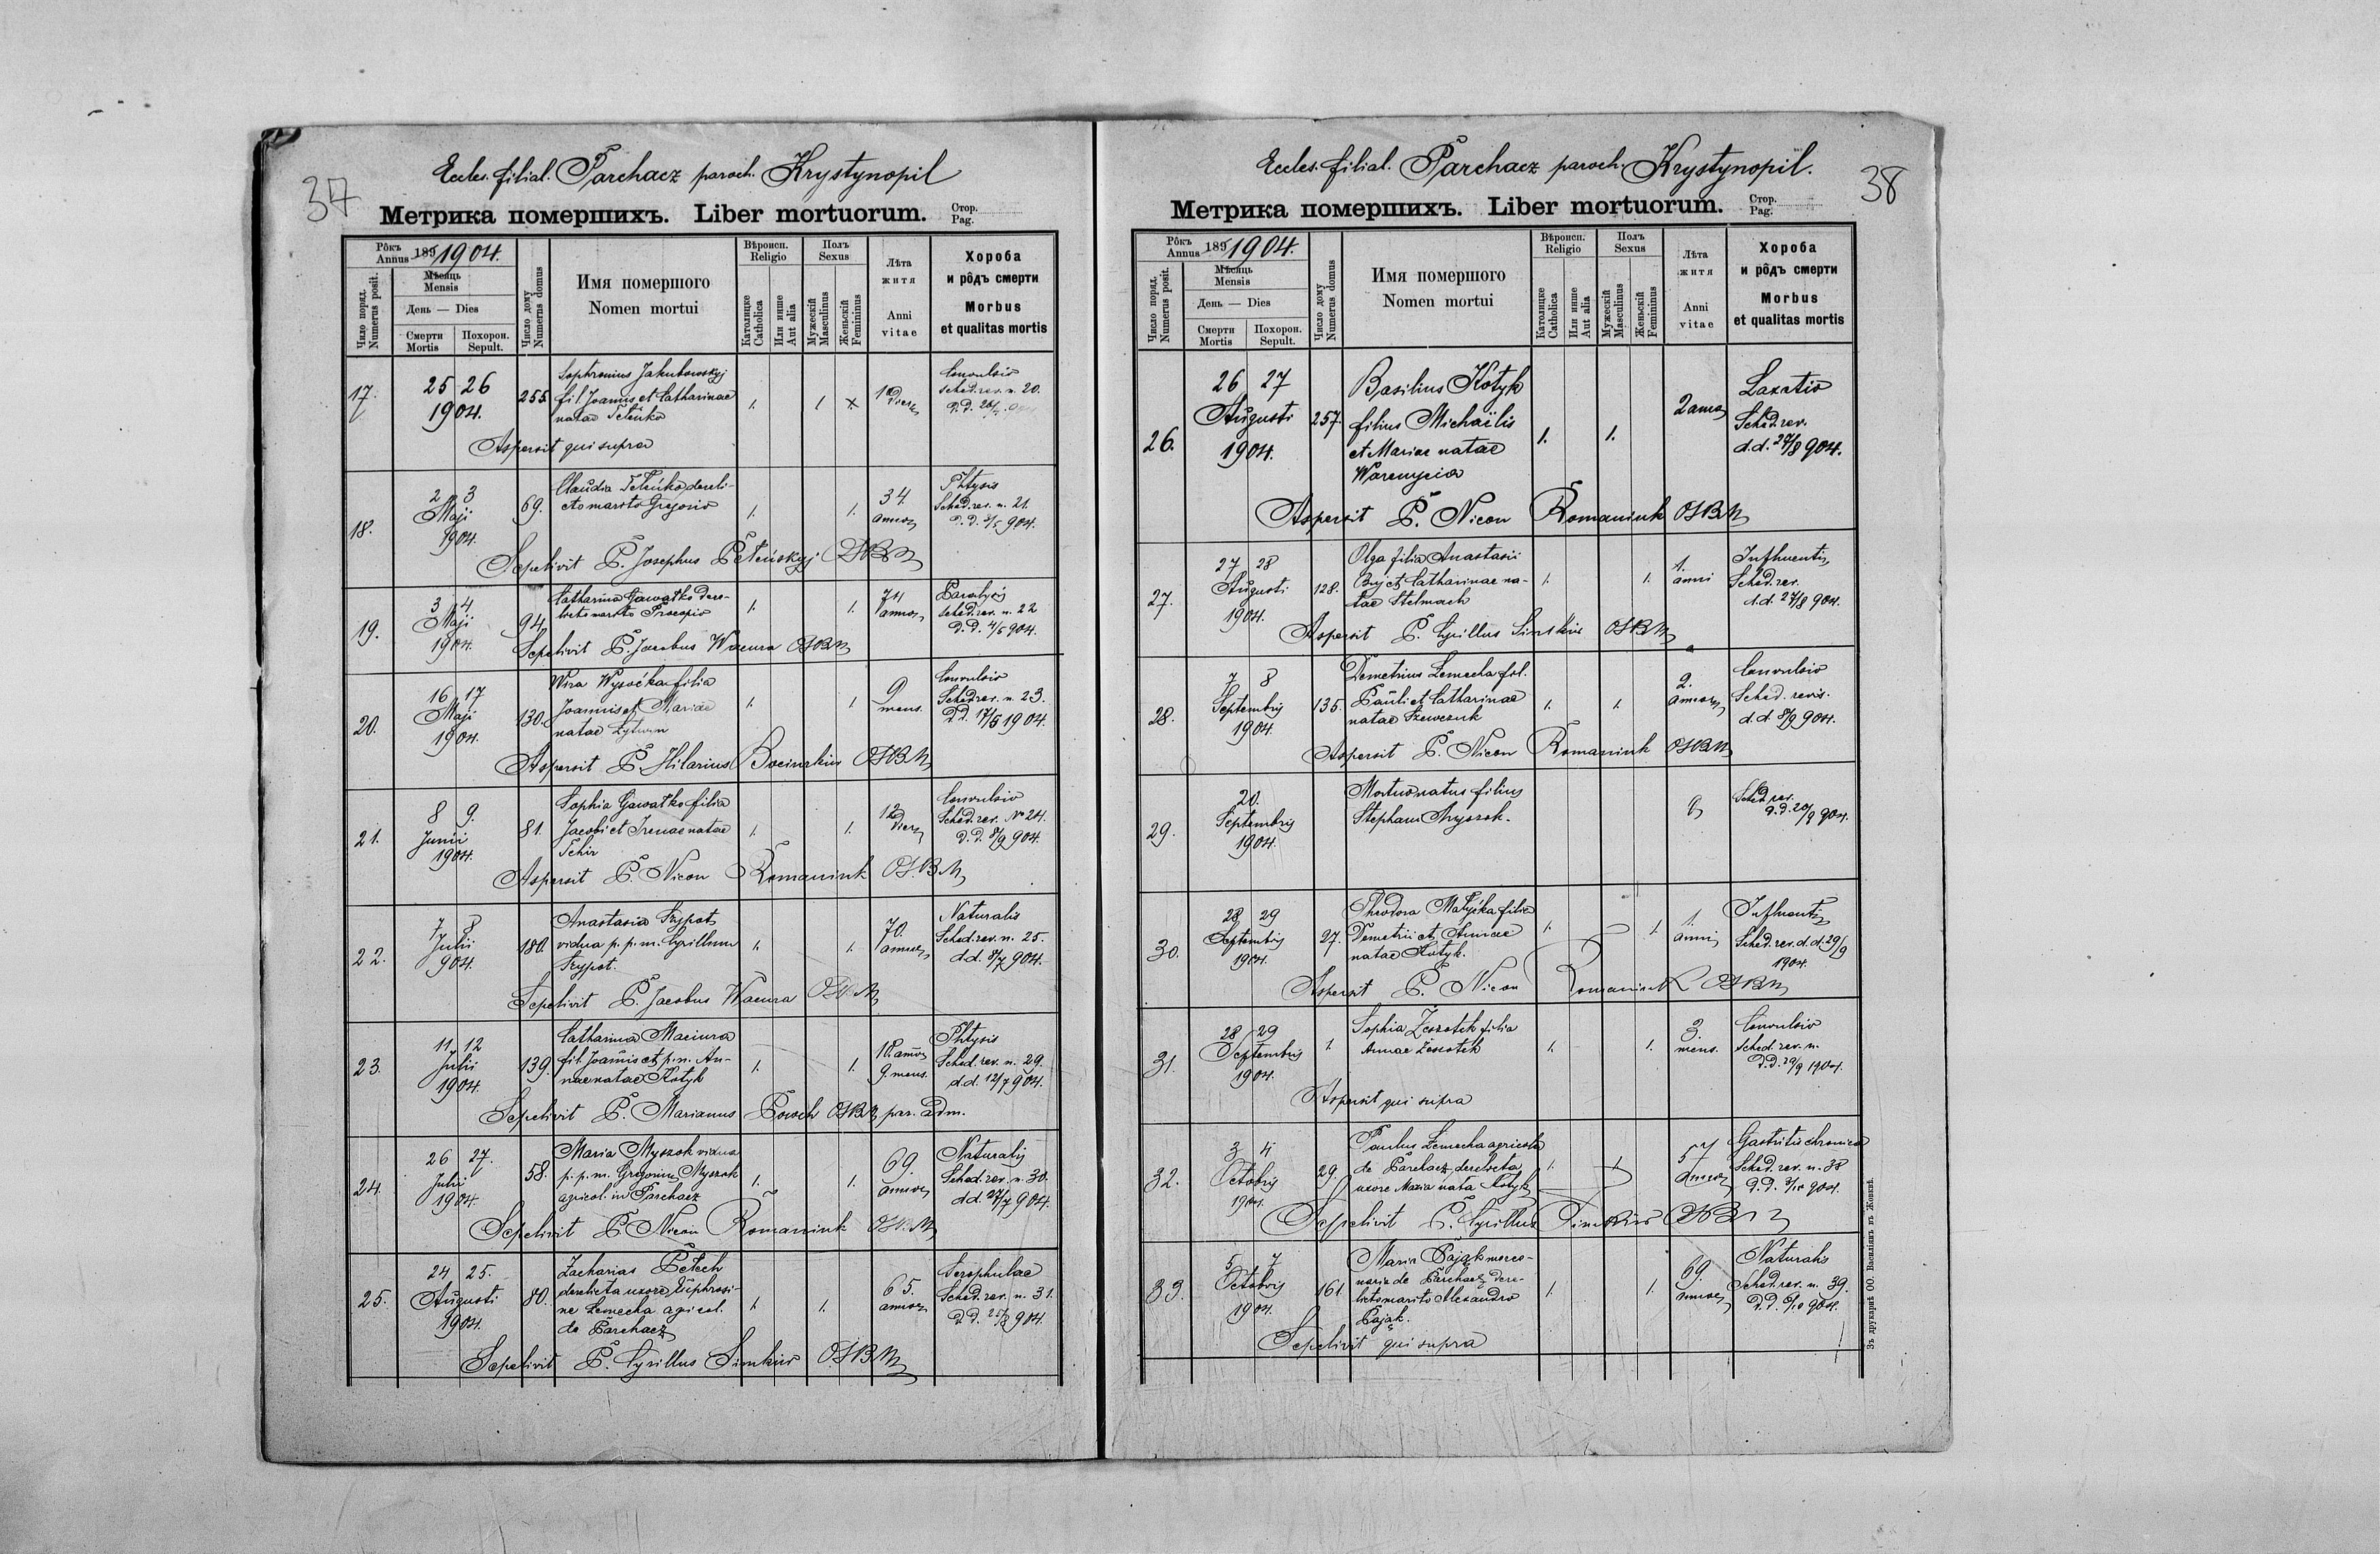 37
Eccles. filial. Parchacz paroch. Krystynopil
Метрика помершихъ. Liber mortuorum.
Стор.
Pag.
Рôкъ
Annus 189 1904.
Мѣсяць
Mensis
День — Dies
Смерти
Mortis
Похорон.
Sepult.
Число поряд.
Numerus posit.
Число дому
Numerus domus
Имя помершого
Nomen mortui
Вѣроисп.
Religio
Католицке
Catholica
Или инше
Aut alia
Полъ
Sexus
Мужескій
Masculinus
Женьскій
Femininus
Лѣта
житя
Anni
vitae
Хороба
и рôдъ смерти
Morbus
et qualitas mortis
17. 25 26 1904. 255.
Sophronius Jakubowskyj
fil. Joannis et Catharinae
natae
1. 1 x
Convulsio
Sched. rev. n. 20.
Aspersit qui supra
18. 2 3 Maji 1904. 69.
Claudia dereli-
cto marito Gregorio
1. 1. 34 annos
Phtysis
Sched. rev. n. 21.
d. d. 904.
Sepelivit P. Josephus OSBM
19. 3 4 Maji 1904. 94.
Catharina Gawatko dere-
licto marito Procopio
1. 1. 74 annos
Sched. rev. n. 22
d. d. 4/5 904.
Sepelivit P. Jacobus Wacura OSBM
20. 16 17 Maji 1904. 130.
Wira Wysoćka filia
Joannis et Mariae
natae
1. 1 9 mens.
Convulsio
Sched. rev. n. 23.
D.D. 17/5 1904.
Aspersit P. Hilarius OSBM
21. 8 9. Junii 1904. 81.
Sophia Gawatko filia
Jacobi et Irenae natae
1. 1. 12 dies
Convulsio
Sched. rev. No 24.
d. d. 904.
Aspersit P. Nicon Romaniuk OSBM
22. 7 8 Julii 904. 180.
Anastasia Szypot
vidua p. p. m. Cyrillum
Szypot.
1. 1. 70. annos
Naturalis
Sched. rev. n. 25.
d.d. 8/7 904.
Sepelivit P. Jacobus Wacura OSBM
23. 11 12 Julii 1904. 139.
Catharina Maciura
fil. Joannis et p.m. An-
nae natae Kotyk
1. 1. 18. annos
9. mens.
Phtysis
Sched. rev. n. 29.
d.d. 12/7 904.
Sepelivit P. Marianus OSBM par. adm.
24. 26 27. Julii 1904. 58.
Maria Myszok vidua
p. p. m. Gregorium Myszok
agricol. in Parchacz
1. 1. 69. annos
Naturalis
Sched. rev. n. 30.
dd. 27/7 904.
Sepelivit P. Nicon Romaniuk OSBM
25. 24 25. Augusti 1904. 80.
Zacharias Petech
derelicta uxore Euphrosi-
ne Lemecha agricol.
de Parchacz
1. 1. 65. annos
Scrophulae
Sched. rev. n. 31.
D.D. 25/8 904.
Sepelivit P. Cyrillus OSBM
38
Eccles. filial. Parchacz paroch. Krystynopil.
Метрика помершихъ. Liber mortuorum.
Стор.
Pag.
Рôкъ
Annus 189 1904.
Мѣсяць
Mensis
День — Dies
Смерти
Mortis
Похорон.
Sepult.
Число поряд.
Numerus posit.
Число дому
Numerus domus
Имя помершого
Nomen mortui
Вѣроисп.
Religio
Католицке
Catholica
Или инше
Aut alia
Полъ
Sexus
Мужескій
Masculinus
Женьскій
Femininus
Лѣта
житя
Anni
vitae
Хороба
и рôдъ смерти
Morbus
et qualitas mortis
26. 26 27 Augusti 1904. 257.
Basilius Kotyk
filius Michaëlis
et Mariae natae
Warenycia
1. 1. 2 annos
Laxatio
Sched. rev.
d.d. 27/8 904.
Aspersit P. Nicon Romaniuk OSBM
27. 27 28 Augusti 1904. 128.
Olga filia Anastasii
et Catharinae na-
tae Stelmach
1. 1. 1. anni
Sched. rev.
d.d. 27/8 904.
Aspersit P. Cyrillus OSBM
28. 7 8 Septembris 1904. 135.
Demetrius Lemecha fil.
Pauli et Catharinae
natae Szewczuk
1. 1. 2. annos
Convulsio
Sched. revis.
d. d. 8/9 904.
Aspersit P. Nicon Romaniuk OSBM
29. 20. Septembris 1904.
Mortuo natus filius
Stephani
Sched. rev.
d. d. 20/9 904.
30. 28 29 Septembris 1904. 27.
Theodora filia
Demetrii et Annae
natae Kotyk.
1. 1 1. anni
Sched. rev. d. d. 29/9
1904.
Aspersit P. Nicon Romaniuk OSBM
31. 28 29 Septembris 1904. 1.
Sophia filia
Annae
1. 1. 3. mens.
Convulsio
Sched. rev. n.
D.D. 29/9 1904.
Aspersit qui supra
32. 3 4 Octobris 1904. 29.
Paulus Lemecha agricola
de Parchacz, derelicta
uxore Maria nata Kotyk
1. 1 57 annos
Gastritis chronica
Sched. rev. n. 38
Sepelivit P. Cyrillus OSBM
33. 5 7 Octobris 1904. 161.
Maria Pająk merce-
naria de Parchacz dere-
licto marito Alexandro
Pająk.
1. 1. 69. annos
Naturalis
Sched. rev. n. 39.
D. D. 6/10 904.
Sepelivit qui supra
Зъ друкарнѣ ОО. Василіянъ въ Жовквѣ.